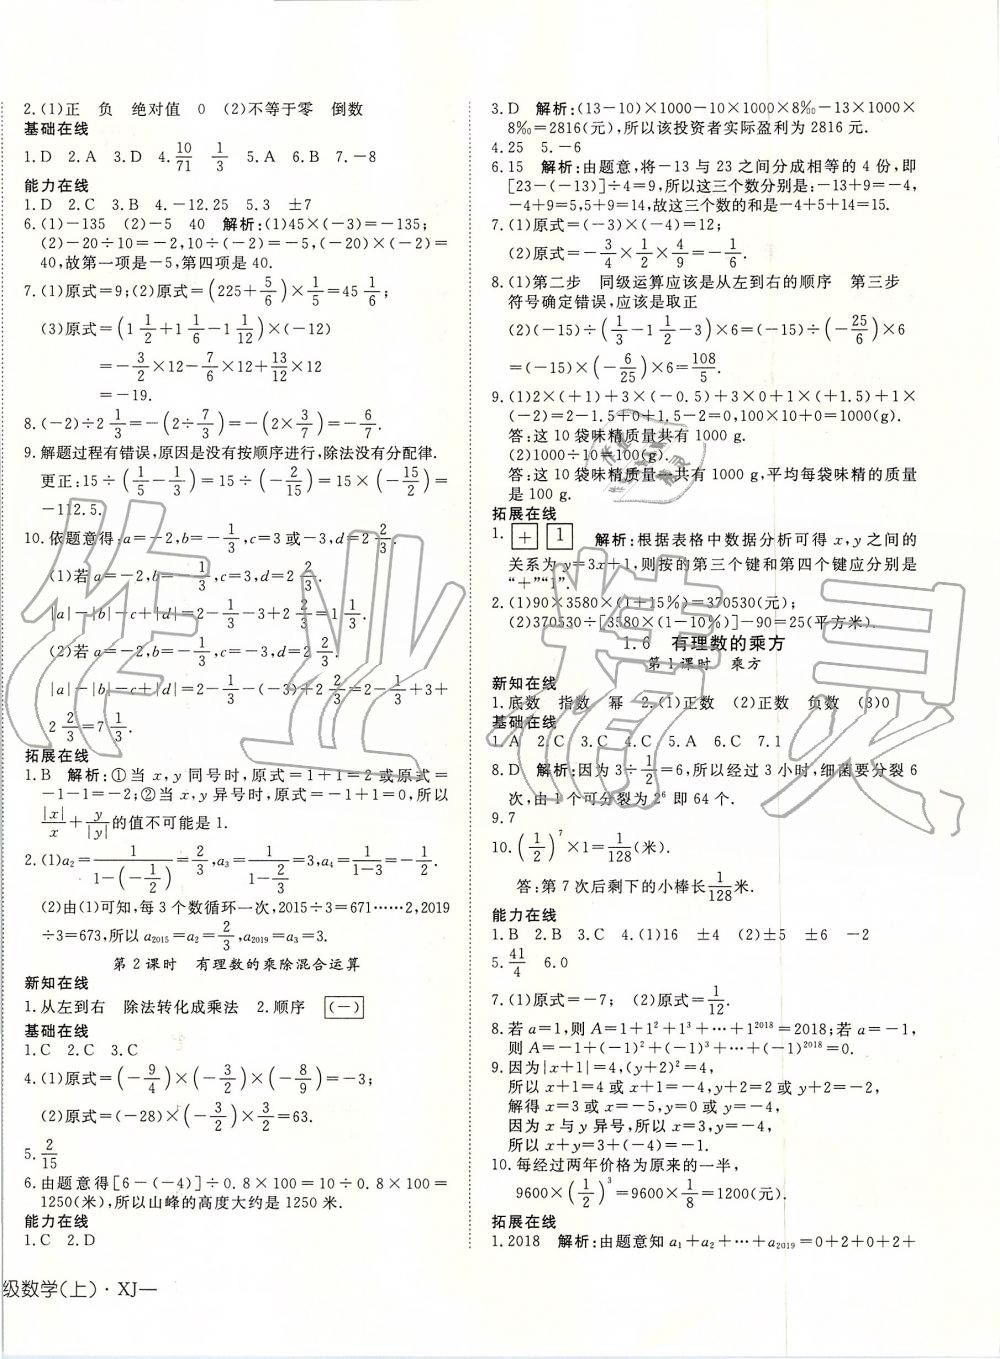 2.(1)正 负 绝对值 0 (2)不等于零 倒数
基础在线
1.D 2.A 3.D 4.10/71 1/3 5.A 6.B 7.-8
能力在线
1.D 2.C 3.B 4.-12.25 5.3 ±7
6.(1)-135 (2)-5 40 解析:(1)45×(-3)=-135;
(2)-20÷10=-2,10÷(-2)=-5,(-20)×(-2)=
40,故第一项是-5,第四项是40.
7.(1)原式=9;(2)原式=(225+5/6)×1/5=45 1/6;
(3)原式=(1 1/2+1 1/6-1 1/12)×(-12)
=-3/2×12-7/6×12+13/12×12
=-19.
8.(-2)÷2 1/3=-(2÷7/3)=-(2×3/7)=-6/7.
9.解题过程有错误,原因是没有按顺序进行,除法没有分配律.
更正:15÷(1/5-1/3)=15÷(-2/15)=15×(-15/2)=
-112.5.
10.依题意得:a=-2,b=-1/3,c=3或-3,d=2 2/3.
(1)若a=-2,b=-1/3,c=3,d=2 2/3.
|a|-|b|-c+|d|=2-1/3-3+2 2/3=1 1/3,
(2)若a=-2,b=-1/3,c=-3,d=2 2/3,
|a|-|b|-c+|d|=2-1/3-(-3)+2 2/3=2-1/3+3+
2 2/3=7 1/3.
拓展在线
1.B 解析:①当x,y同号时,原式=1+1=2或原式=
-1-1=-2;②当x,y异号时,原式=-1+1=0,所以
|x|/x+y/|y|的值不可能是1.
2.(1)a₂=1/(1-(-1/2))=2/3,a₃=1/(1-2/3)=3,a₄=1/(1-3)=-1/2.
(2)由(1)可知,每3个数循环一次,2015÷3=671……2,2019
÷3=673,所以a₂₀₁₅=a₂=2/3,a₂₀₁₉=a₃=3.
第2课时 有理数的乘除混合运算
新知在线
1.从左到右 除法转化成乘法 2.顺序 (-)
基础在线
1.C 2.C 3.C
4.(1)原式=(-9/4)×(-3/2)×(-8/9)=-3;
(2)原式=(-28)×(-3/2)×3/2=63.
5.2/15
6.由题意得[6-(-4)]÷0.8×100=10÷0.8×100=
1250(米),所以山峰的高度大约是1250米.
能力在线
1.C 2.D
级数学(上)·XJ—
3.D 解析:(13-10)×1000-10×1000×8‰-13×1000×
8‰=2816(元),所以该投资者实际盈利为2816元.
4.25 5.-6
6.15 解析:由题意,将-13与23之间分成相等的4份,即
[23-(-13)]÷4=9,所以这三个数分别是:-13+9=-4,
-4+9=5,5+9=14,故这三个数的和是-4+5+14=15.
7.(1)原式=(-3)×(-4)=12;
(2)原式=-3/4×1/2×4/9=-1/6.
8.(1)第二步 同级运算应该是从左到右的顺序 第三步
符号确定错误,应该是取正
(2)(-15)÷(1/3-1 1/2-3)×6=(-15)÷(-25/6)×6
=(-15)×(-6/25)×6=108/5.
9.(1)2×(+1)+3×(-0.5)+3×0+1×(+1.5)+1×
(-2)=2-1.5+0+1.5-2=0,100×10+0=1000(g).
答:这10袋味精质量共有1000 g.
(2)1000÷10=100(g).
答:这10袋味精质量一共有1000 g,平均每袋味精的质量
是100 g.
拓展在线
1.+ 1 解析:根据表格中数据分析可得x,y之间的
关系为y=3x+1,则按的第三个键和第四个键应分别是
“+”“1”.
2.(1)90×3580×(1+15%)=370530(元);
(2)370530÷[3580×(1-10%)]-90=25(平方米).
1.6 有理数的乘方
第1课时 乘方
新知在线
1.底数 指数 幂 2.(1)正数 (2)正数 负数 (3)0
基础在线
1.A 2.C 3.C 4.C 5.A 6.C 7.1
8.D 解析:因为3÷1/2=6,所以经过3小时,细菌要分裂6
次,由1个可分裂为2⁶即64个.
9.7
10.(1/2)⁷×1=1/128(米).
答:第7次后剩下的小棒长1/128米.
能力在线
1.B 2.B 3.C 4.(1)16 ±4 (2)±5 ±6 -2
5.41/4 6.0
7.(1)原式=-7; (2)原式=1/12.
8.若a=1,则A=1+1²+1³+…+1²⁰¹⁸=2018;若a=-1,
则A=-1+(-1)²+(-1)³+…+(-1)²⁰¹⁸=0.
9.因为|x+1|=4,(y+2)²=4,
所以x+1=4或x+1=-4,y+2=2或y+2=-2,
解得x=3或x=-5,y=0或y=-4,
因为x与y异号,所以x=3,y=-4,
所以x+y=3+(-4)=-1.
10.每经过两年价格为原来的一半,
9600×(1/2)³=9600×1/8=1200(元).
拓展在线
1.2018 解析:由题意知a₁+a₂+…+a₂₀₁₉=0+2+0+2+
作业精灵